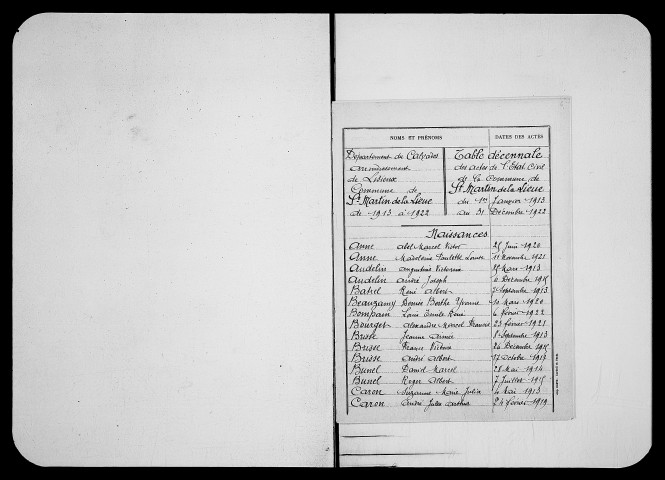 NOMS ET PRÉNOMS DATES DES ACTES
Département du Calvados
arrondissement
de Lisieux
Commune de
St Martin de la Lieue
de 1913 à 1922
Table décennale
des actes de l'Etat Civil
de la Commune de
St Martin de la Lieue
du 1er Janvier 1913
au 31 Décembre 1922
Naissances
Anne Abel Marcel Victor 25 Juin 1920
Anne Madeleine Paulette Louise 11 Novembre 1921
Audelin Augustine Victorine Mars 1913
Audelin André Joseph Décembre 1915
Batrel René Albert Septembre 1913
Beauzamy Denise Berthe Yvonne 10 Mars 1920
Bompain Louis Emile René 6 février 1922
Bourget Alexandre Marcel Maurice 23 février 1921
Brisse Jeanne Aimée Septembre 1913
Brisse France Victoire 20 Décembre 1915
Brisse André Albert 17 Octobre 1919
Bunel Daniel Marcel 28 Mai 1914
Bunel Roger Albert 7 Juillet 1915
Caron Suzanne Marie Julia 4 Mai 1913
Caron André Jules Arthur 24 février 1919